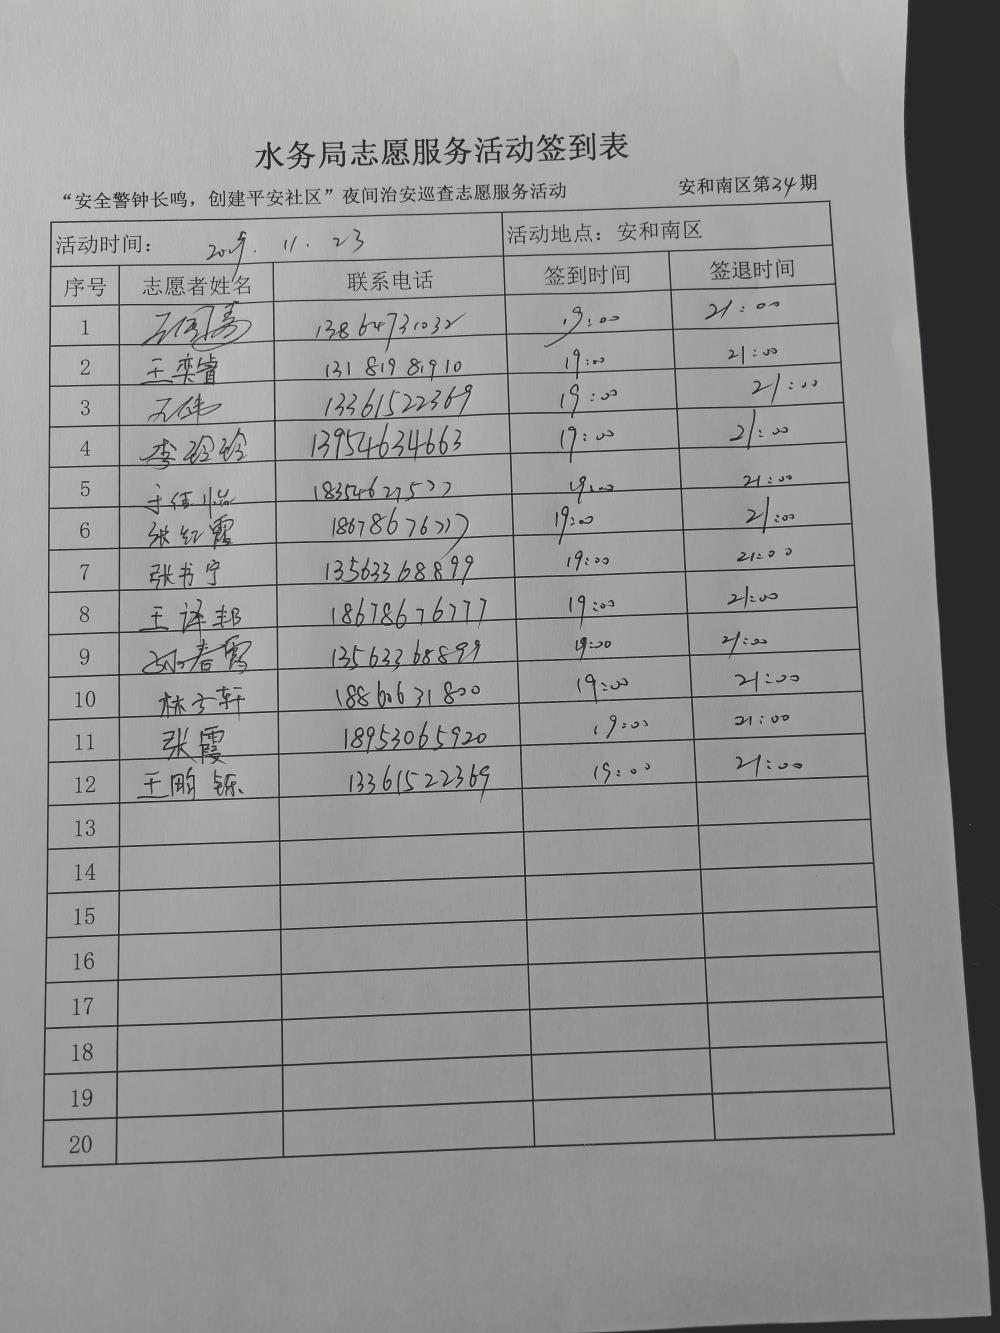 水务局志愿服务活动签到表
“安全警钟长鸣，创建平安社区”夜间治安巡查志愿服务活动 安和南区第34期
活动时间： 11.23 活动地点：安和南区
序号 志愿者姓名 联系电话 签到时间 签退时间
1 13864731032 19:00 21:00
2 王奕睿 13181981910 19:00 21:00
3 13361522369 19:00 21:00
4 李玲玲 13954634663 19:00 21:00
5 于佳怡 18354627577 19:00 21:00
6 张红霞 18678676777 19:00 21:00
7 张书宁 13563368899 19:00 21:00
8 王译邦 18678676777 19:00 21:00
9 孙春霞 13563368899 19:00 21:00
10 林子轩 18860631800 19:00 21:00
11 张霞 18953065920 19:00 21:00
12 王鹏铄 13361522369 19:00 21:00
13
14
15
16
17
18
19
20